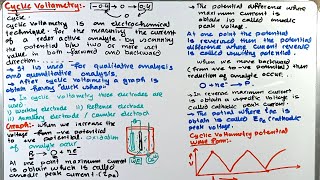 Cyclic Voltametry:
-0.4 → -0.4
Cycle :
cyclic voltametry is an electrochemical
technique. for the measuring the current
of a redox active analyte by scanning
the potential b/w two or more set
value in both forward and backward
direction.
→ It is used for qualitative analysis
and quantitative analysis.
→ After cyclic voltametry a graph is
obtain having "duck shape"
→ In cyclic voltametry three electrodes are
used
i) working electrode ii) Reference electrode
iii) Auxiliary electrode / counter electrode
Graph:- when we increase the
voltage from -ve potential
to +ve potential. oxidation
of analyte occur.
R → O + ne-
At one point maximum current
is obtain which is called
anodic peak current (ipa)
→ The potential difference where
maximum current is
obtain is called anodic
peak voltage.
At one point the potential
is reversed then the potential
difference where current reversed
is called switching potential.
→ when we move backward
(from +ve to -ve potential) then
reduction of analyte occur.
O + ne- → R
→ In reverse maximum current
is obtain is called
cathodic peak current.
→ The potential where ipc is
obtain is called Epc (cathodic
peak voltage)
Cyclic Voltametry potential
wave form:-